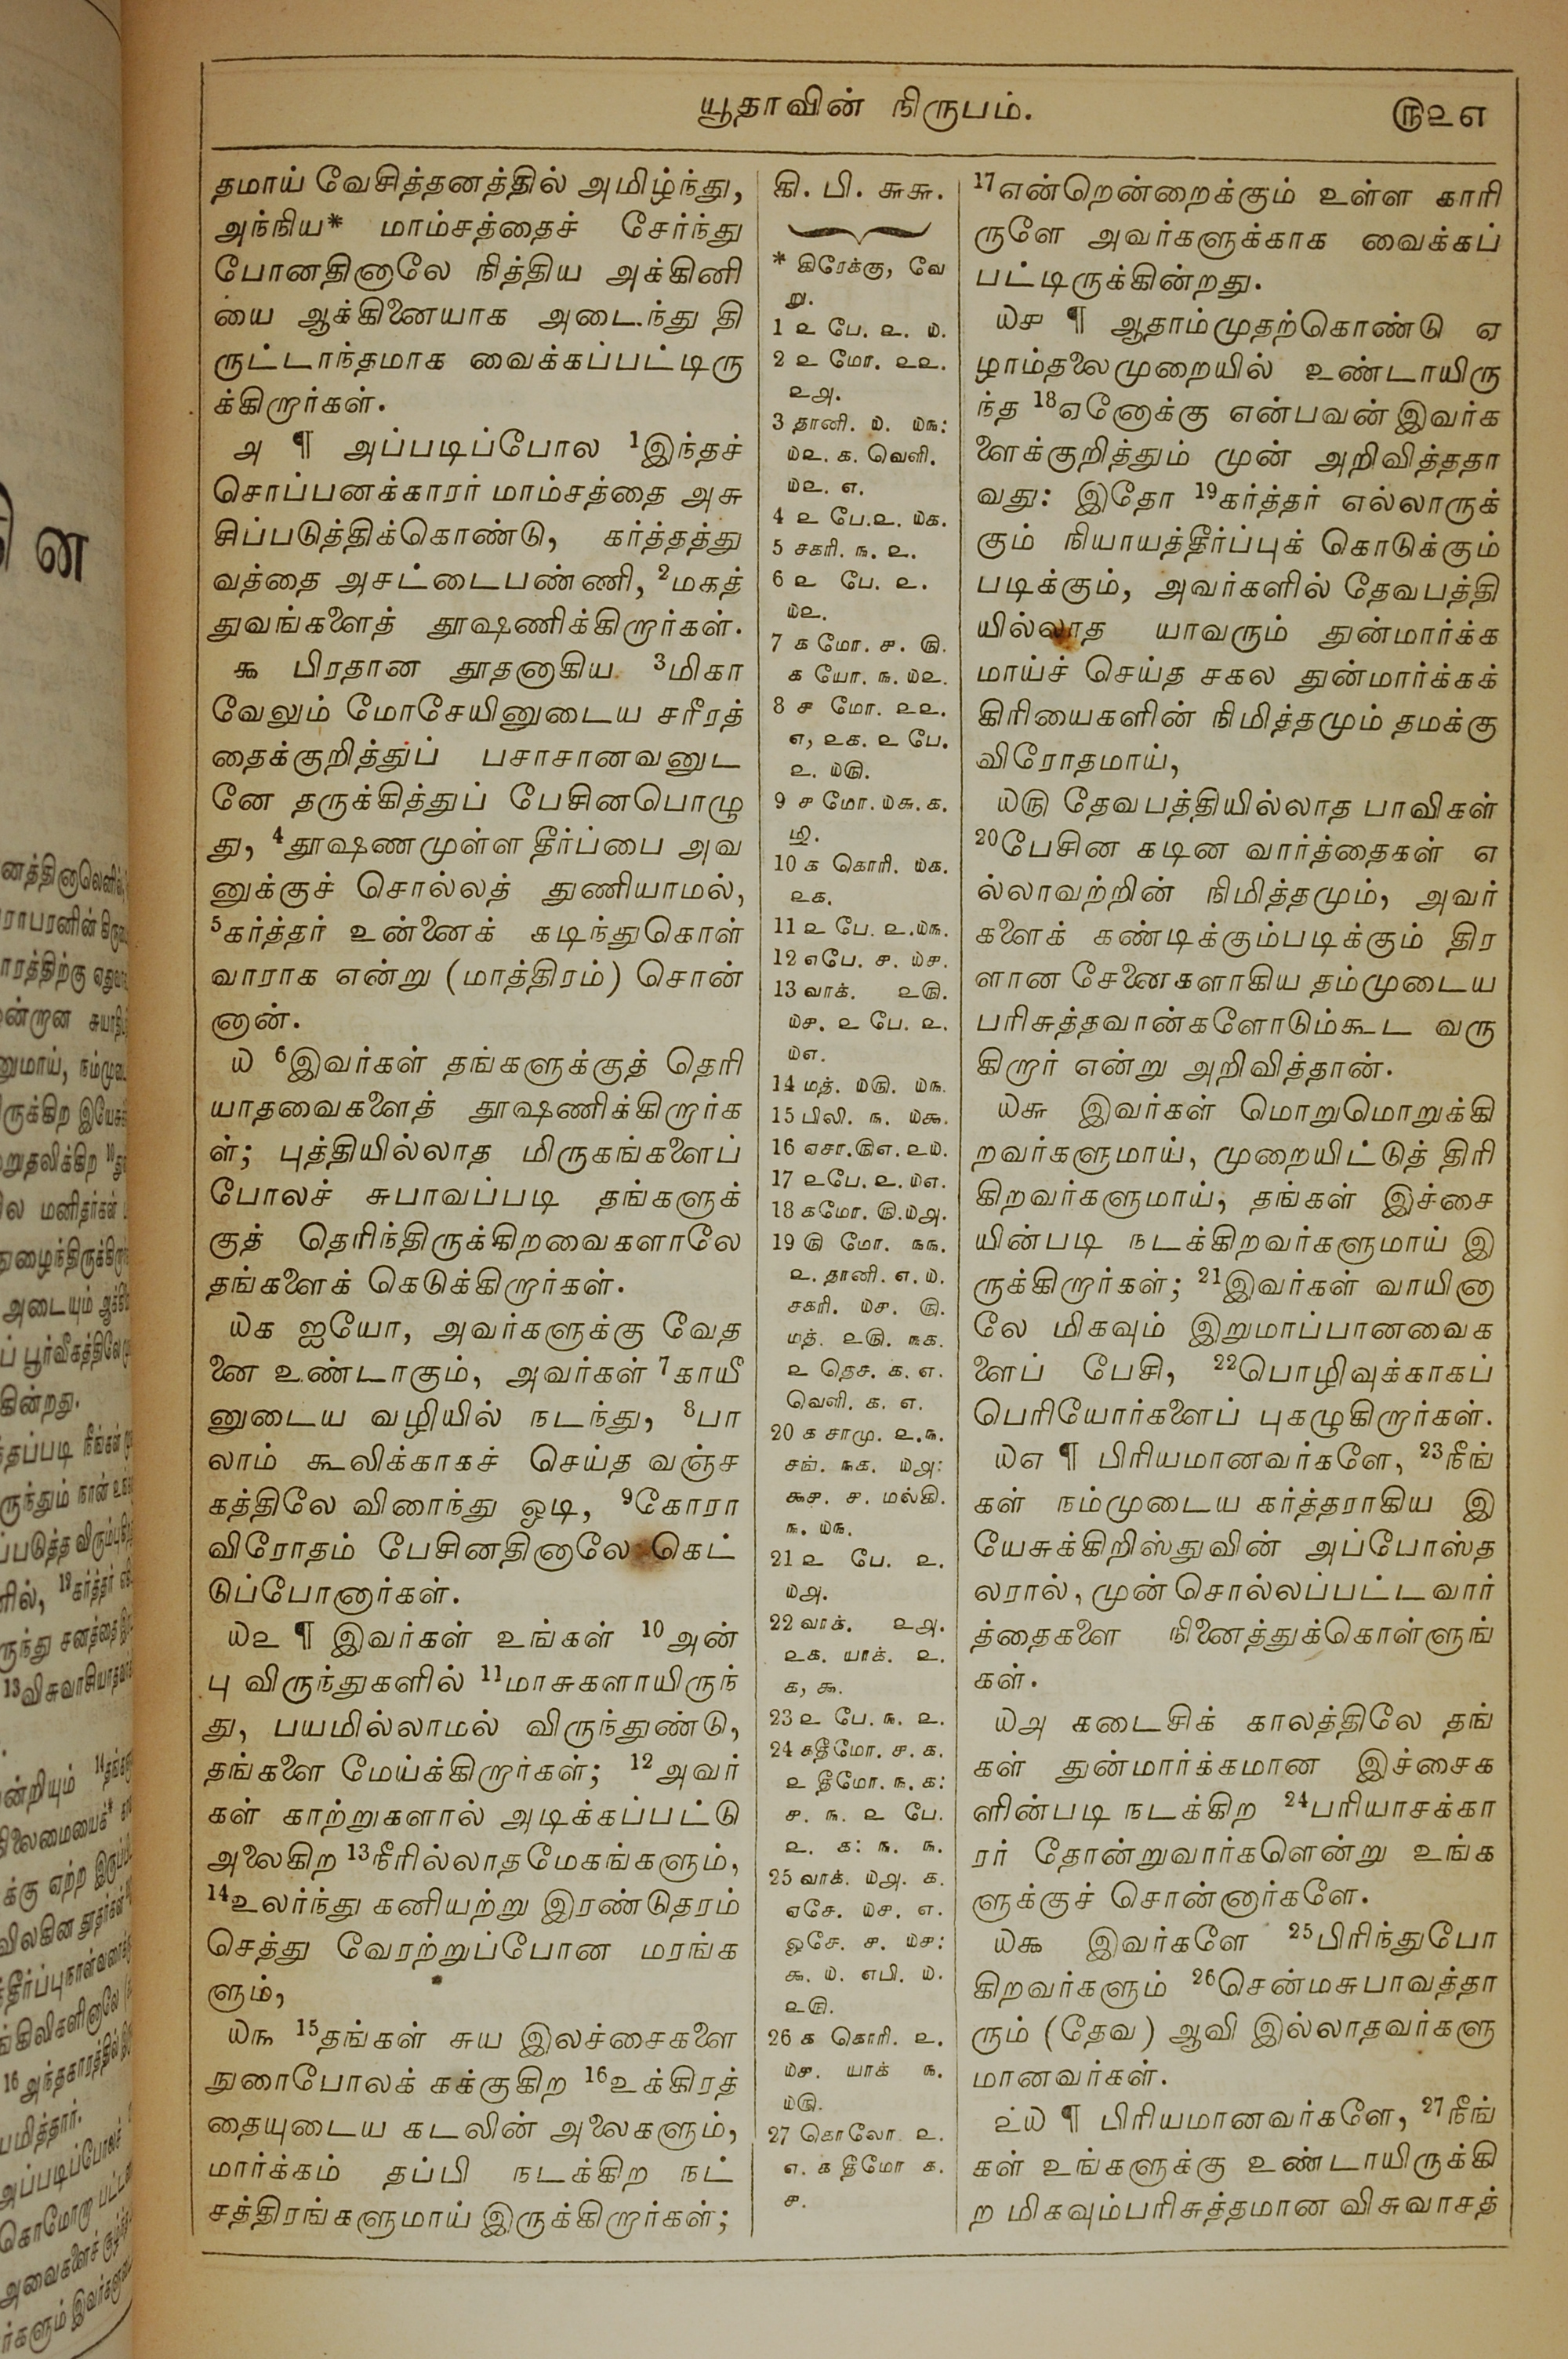 யூதாவின் நிருபம்.
௫௨௭
தமாய் வேசித்தனத்தில் அமிழ்ந்து,
அந்நிய* மாம்சத்தைச் சேர்ந்து
போனதினாலே நித்திய அக்கினி
யை ஆக்கினையாக அடைந்து தி
ருட்டாந்தமாக வைக்கப்பட்டிரு
க்கிறார்கள்.
௮ ¶ அப்படிப்போல 1இந்தச்
சொப்பனக்காரர் மாம்சத்தை அசு
சிப்படுத்திக்கொண்டு, கர்த்தத்து
வத்தை அசட்டைபண்ணி, 2மகத்
துவங்களைத் தூஷணிக்கிறார்கள்.
௯ பிரதான தூதனாகிய 3மிகா
வேலும் மோசேயினுடைய சரீரத்
தைக்குறித்துப் பசாசானவனுட
னே தருக்கித்துப் பேசினபொழு
து, 4தூஷணமுள்ள தீர்ப்பை அவ
னுக்குச் சொல்லத் துணியாமல்,
5கர்த்தர் உன்னைக் கடிந்துகொள்
வாராக என்று (மாத்திரம்) சொன்
னான்.
௰ 6இவர்கள் தங்களுக்குத் தெரி
யாதவைகளைத் தூஷணிக்கிறார்க
ள்; புத்தியில்லாத மிருகங்களைப்
போலச் சுபாவப்படி தங்களுக்
குத் தெரிந்திருக்கிறவைகளாலே
தங்களைக் கெடுக்கிறார்கள்.
௰௧ ஐயோ, அவர்களுக்கு வேத
னை உண்டாகும், அவர்கள் 7காயீ
னுடைய வழியில் நடந்து, 8பா
லாம் கூலிக்காகச் செய்த வஞ்ச
கத்திலே விரைந்து ஓடி, 9கோரா
விரோதம் பேசினதினாலே கெட்
டுப்போனார்கள்.
௰௨ ¶ இவர்கள் உங்கள் 10அன்
பு விருந்துகளில் 11மாசுகளாயிருந்
து, பயமில்லாமல் விருந்துண்டு,
தங்களை மேய்க்கிறார்கள்; 12அவர்
கள் காற்றுகளால் அடிக்கப்பட்டு
அலைகிற 13நீரில்லாதமேகங்களும்,
14உலர்ந்து கனியற்று இரண்டுதரம்
செத்து வேரற்றுப்போன மரங்க
ளும்,
௰௩ 15தங்கள் சுய இலச்சைகளை
நுரைபோலக் கக்குகிற 16உக்கிரத்
தையுடைய கடலின் அலைகளும்,
மார்க்கம் தப்பி நடக்கிற நட்
சத்திரங்களுமாய் இருக்கிறார்கள்;
கி. பி. ௬௬.
* கிரேக்கு, வே
று.
1 ௨ பே. ௨. ௰.
2 ௨ மோ. ௨௨.
௨௮.
3 தானி. ௰. ௰௩:
௰௨. ௧. வெளி.
௰௨. ௭.
4 ௨ பே.௨. ௰௧.
5 சகரி. ௩. ௨.
6 ௨ பே. ௨.
௰௨.
7 ௧ மோ. ௪. ௫.
௧ யோ. ௩. ௰௨.
8 ௪ மோ. ௨௨.
௭, ௨௧. ௨ பே.
௨. ௰௫.
9 ௪ மோ. ௰௬. ௧.
10 ௧ கொரி. ௰௧.
௨௧.
11 ௨ பே. ௨.௰௩.
12 எபே. ௪. ௰௪.
13 வாக். ௨௫.
௰௪. ௨ பே. ௨.
௰௭.
14 மத். ௰௫. ௰௩.
15 பிலி. ௩. ௰௯.
16 ஏசா.௫௭. ௨௰.
17 ௨பே. ௨. ௰௭.
18 ௧மோ. ௫.௰௮.
19 ௫ மோ. ௩௩.
௨. தானி. ௭. ௰.
சகரி. ௰௪. ௫.
மத். ௨௫. ௩௧.
௨ தெச. ௧. ௭.
வெளி. ௧. ௭.
20 ௧ சாமு. ௨.௩.
சங். ௩௧. ௰௮:
௯௪. ௪. மல்கி.
௩. ௰௩.
21 ௨ பே. ௨.
௰௮.
22 வாக். ௨௮.
௨௧. யாக். ௨.
௧, ௯.
23 ௨ பே. ௩. ௨.
24 ௧தீமோ. ௪. ௧.
௨ தீமோ. ௩. ௧:
௪. ௩. ௨ பே.
௨. ௧: ௩. ௩.
25 வாக். ௰௮. ௧.
ஏசே. ௰௪. ௭.
ஓசே. ௪. ௰௪:
௯. ௰. எபி. ௰.
௨௫.
26 ௧ கொரி. ௨.
௰௪. யாக் ௩.
௰௫.
27 கொலோ. ௨.
௭. ௧ தீமோ ௧.
௪.
17என்றென்றைக்கும் உள்ள காரி
ருளே அவர்களுக்காக வைக்கப்
பட்டிருக்கின்றது.
௰௪ ¶ ஆதாம்முதற்கொண்டு ஏ
ழாம்தலைமுறையில் உண்டாயிரு
ந்த 18ஏனோக்கு என்பவன் இவர்க
ளைக்குறித்தும் முன் அறிவித்ததா
வது: இதோ 19கர்த்தர் எல்லாருக்
கும் நியாயத்தீர்ப்புக் கொடுக்கும்
படிக்கும், அவர்களில் தேவபத்தி
யில்லாத யாவரும் துன்மார்க்க
மாய்ச் செய்த சகல துன்மார்க்கக்
கிரியைகளின் நிமித்தமும் தமக்கு
விரோதமாய்,
௰௫ தேவபத்தியில்லாத பாவிகள்
20பேசின கடின வார்த்தைகள் எ
ல்லாவற்றின் நிமித்தமும், அவர்
களைக் கண்டிக்கும்படிக்கும் திர
ளான சேனைகளாகிய தம்முடைய
பரிசுத்தவான்களோடும்கூட வரு
கிறார் என்று அறிவித்தான்.
௰௬ இவர்கள் மொறுமொறுக்கி
றவர்களுமாய், முறையிட்டுத் திரி
கிறவர்களுமாய், தங்கள் இச்சை
யின்படி நடக்கிறவர்களுமாய் இ
ருக்கிறார்கள்; 21இவர்கள் வாயினா
லே மிகவும் இறுமாப்பானவைக
ளைப் பேசி, 22பொழிவுக்காகப்
பெரியோர்களைப் புகழுகிறார்கள்.
௰௭ ¶ பிரியமானவர்களே, 23நீங்
கள் நம்முடைய கர்த்தராகிய இ
யேசுக்கிறிஸ்துவின் அப்போஸ்த
லரால், முன் சொல்லப்பட்ட வார்
த்தைகளை நினைத்துக்கொள்ளுங்
கள்.
௰௮ கடைசிக் காலத்திலே தங்
கள் துன்மார்க்கமான இச்சைக
ளின்படி நடக்கிற 24பரியாசக்கா
ரர் தோன்றுவார்களென்று உங்க
ளுக்குச் சொன்னார்களே.
௰௯ இவர்களே 25பிரிந்துபோ
கிறவர்களும் 26சென்மசுபாவத்தா
ரும் (தேவ) ஆவி இல்லாதவர்களு
மானவர்கள்.
௨௰ ¶ பிரியமானவர்களே, 27நீங்
கள் உங்களுக்கு உண்டாயிருக்கி
ற மிகவும்பரிசுத்தமான விசுவாசத்